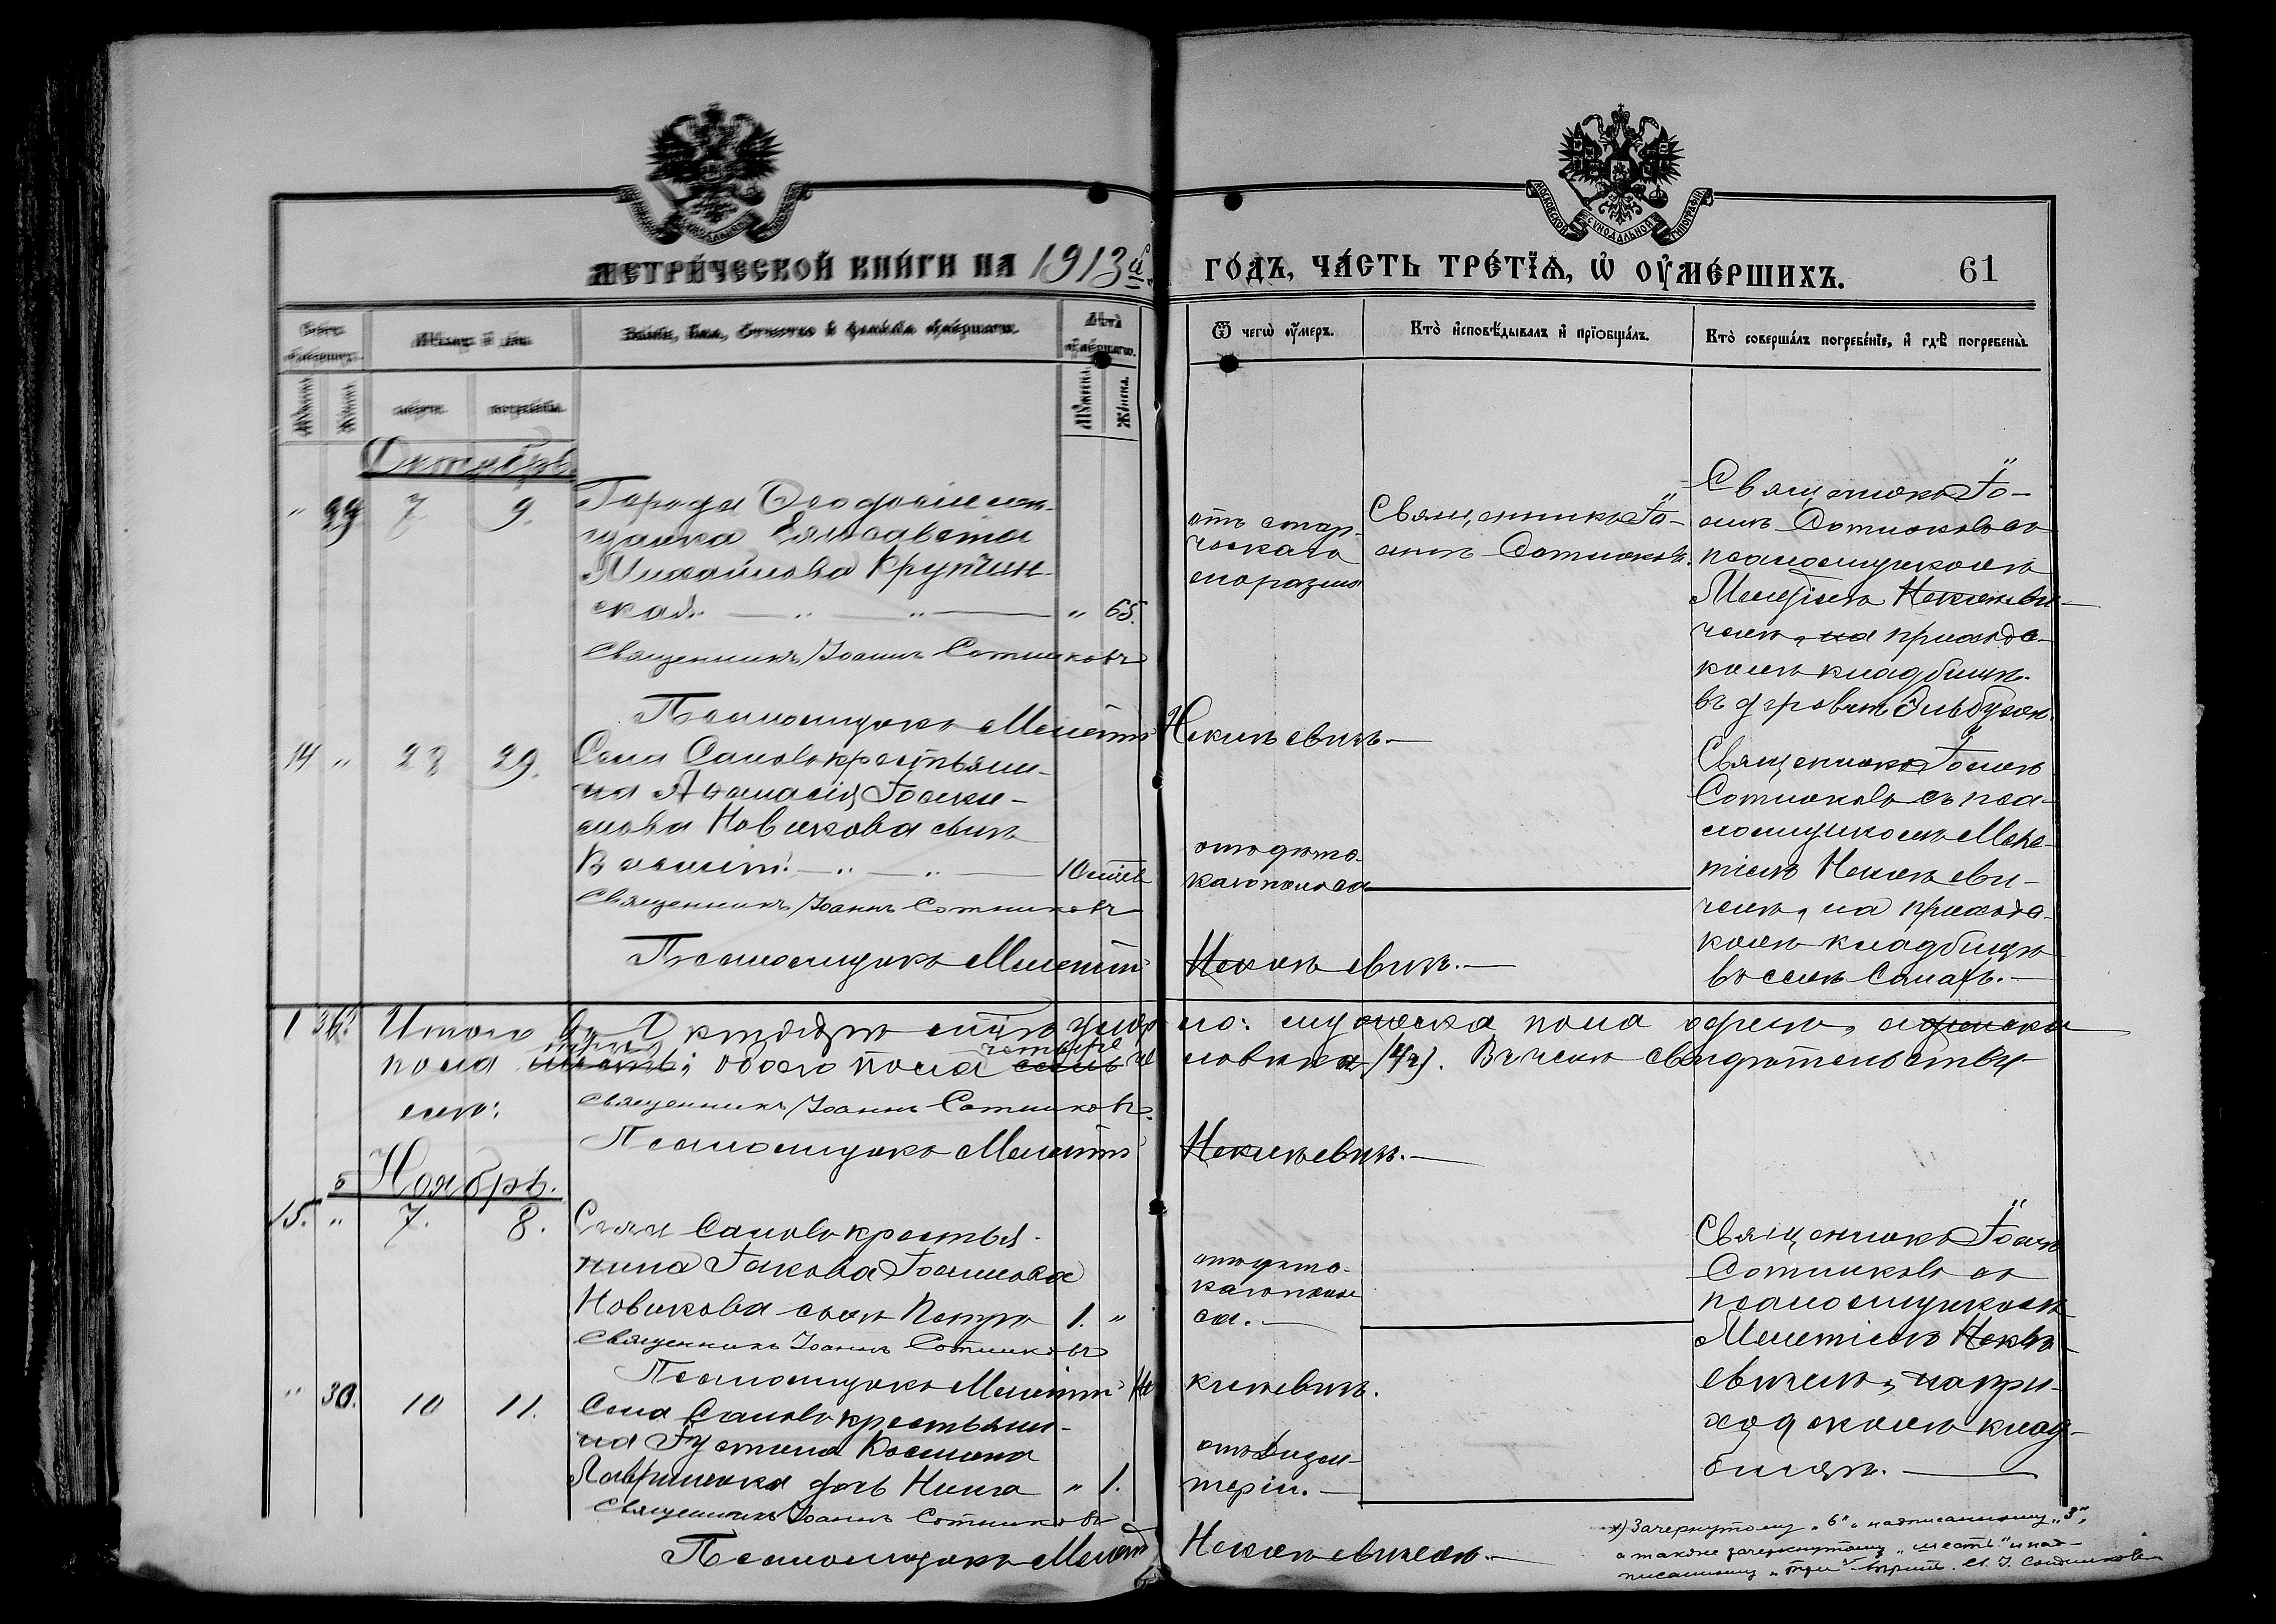 МЕТРИ́ЧЕСКОЙ КНИ́ГИ НА 1913й
ГО́ДЪ, ЧА́СТЬ ТРЕ́ТЇѦ, Ѡ҆ ОУ҆МЕ́РШИХЪ. 61
МОСКОВСКОЙ СѴНОДАЛЬНОЙ ТИПОГРАФІИ
Мѣсяцъ и день.
Званіе, имя, отчество и фамилія умершаго.
Лѣта умершаго.
Ѿ чегѡ оу҆́меръ.
Кто̀ и҆сповѣ́дывалъ и҆ прїѡбща́лъ.
Кто̀ соверша́лъ погребе́нїе, и҆ гдѣ̀ погребены̀.
Мужеска. Женска.
Октябрь
" 29 7. 9.
Города Ѳеодосіи мѣ-
щанка Елисавета
Михайлова Крутин-
ская. " 65.
Священникъ Іоаннъ Сотниковъ
Псаломщикъ Мелетій Некиевичъ.
отъ стар-
ческаго
маразма
Священникъ Іо-
аннъ Сотниковъ.
Священникъ Іо-
аннъ Сотниковъ со
псаломщикомъ
Мелетіемъ
чемъ, на приходс-
комъ кладбищѣ
въ деревнѣ
14 " 28 29.
Села Саловъ крестьяни-
на Аѳанасія Іоаки-
мова Новикова сынъ
Василій. 10 мѣс.
Священникъ Іоаннъ Сотниковъ
Псаломщикъ Мелетій
отъ дѣтс-
каго поноса
Священникъ Іоаннъ
Сотниковъ съ пса-
ломщикомъ Меле-
тіемъ
чемъ, на приходс-
комъ кладбищѣ
въ селѣ Салахъ.
1 3
Итого въ Октябрѣ мѣс. умер-
ло: мужеска пола одинъ, женска
пола шесть; обоего пола четыре че-
ловѣка (4). Въ чемъ свидѣтельству-
емъ:
Священникъ Іоаннъ Сотниковъ.
Псаломщикъ Мелетій
Ноябрь.
15. " 7. 8.
Села Саловъ крестья-
нина Іакова Іоаннова
Новикова сынъ Петръ 1. "
Священникъ Іоаннъ Сотниковъ
Псаломщикъ Мелетій
отъ дѣтс-
каго поно-
са.
Священникъ Іоаннъ
Сотниковъ со
псаломщикомъ
Мелетіемъ
евичемъ, на при-
ходскомъ клад-
бищѣ.
" 30. 10 11.
Села Саловъ крестьяни-
на Іустина Косьмина
Лавриненка дочь Нина " 1.
Священникъ Іоаннъ Сотниковъ
Псаломщикъ Мелетій
отъ дизен-
теріи.
х) Зачеркнутому „6", надписанному „3",
а также зачеркнутому „шесть" и над-
писанному „три" вѣрить. Св. І. Сотниковъ